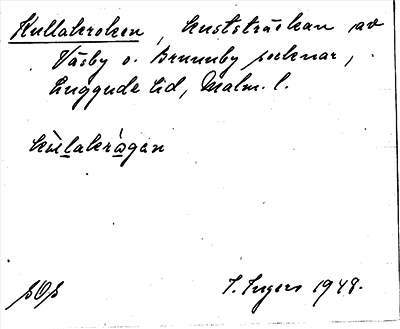 Kullakroken, kuststräckan av
Väsby o. Brunnby socknar,
Luggude hd, Malm. l.
kùlakrågan
sOs
I. Ingers 1948.